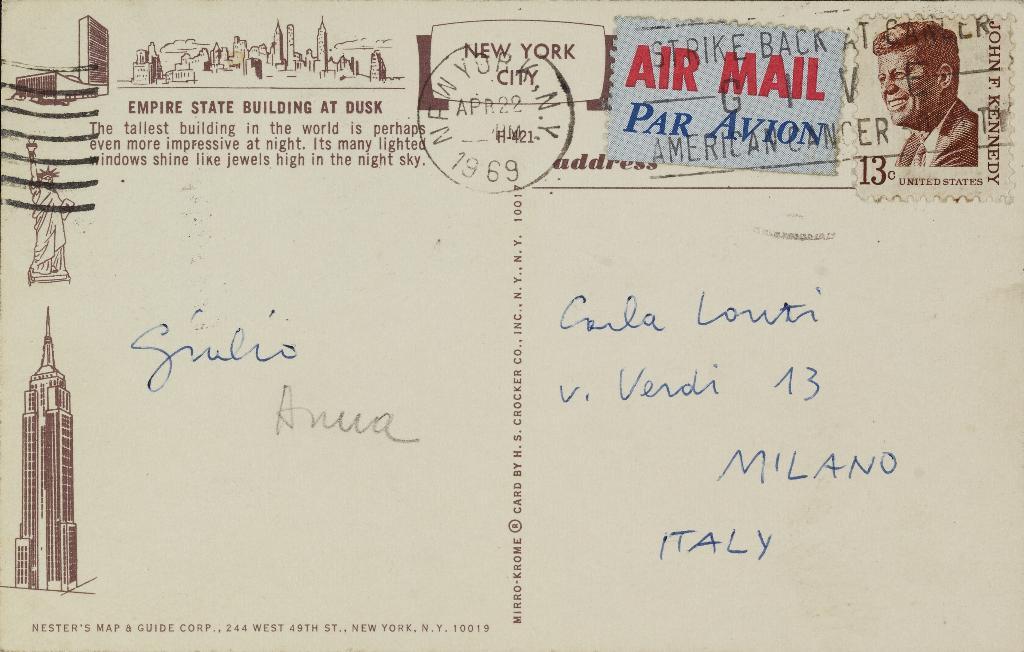 EMPIRE STATE BUILDING AT DUSK
The tallest building in the world is perhaps
even more impressive at night. Its many lighted
windows shine like jewels high in the night sky.
NEW YORK
CITY
H-421
NEW YORK, N.Y.
APR 22
1969
STRIKE BACK AT CANCER
GIVE
AMERICAN CANCER
AIR MAIL
PAR AVION
JOHN F. KENNEDY
13c UNITED STATES
address
Giulio
Anna
Carla Lonzi
v. Verdi 13
MILANO
ITALY
MIRRO-KROME ® CARD BY H. S. CROCKER CO., INC., N. Y., N. Y. 10017
NESTER'S MAP & GUIDE CORP., 244 WEST 49TH ST., NEW YORK, N.Y. 10019